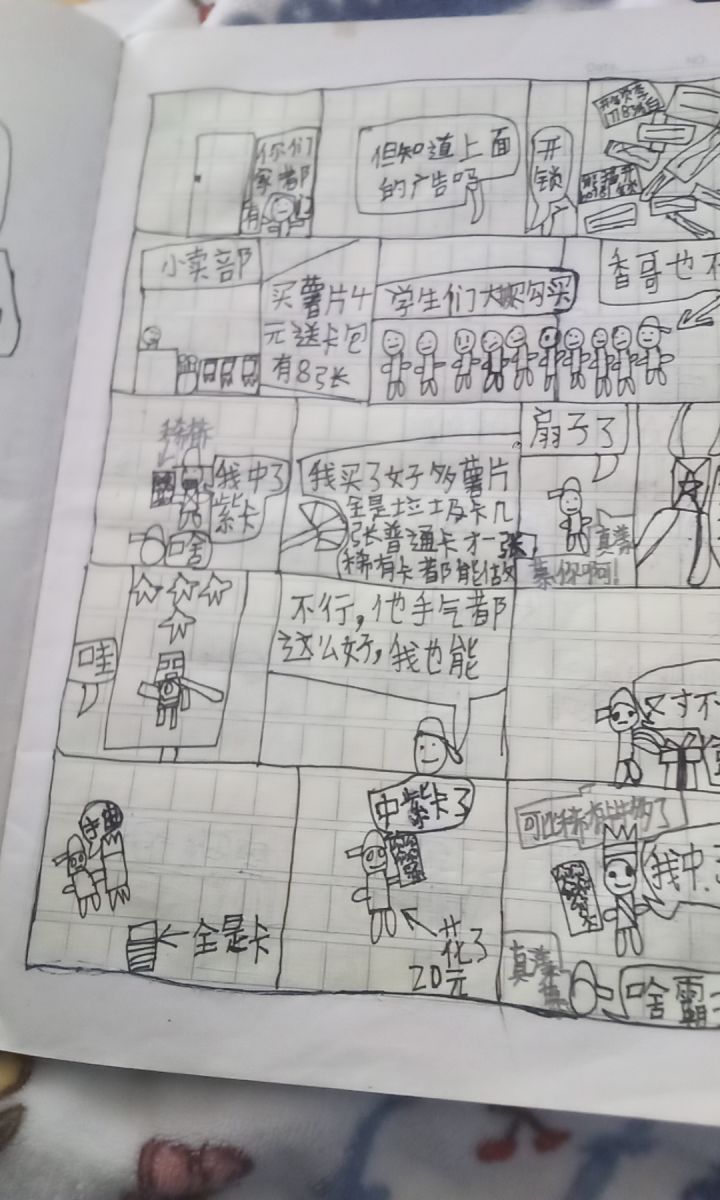 你们
家都
有
但知道上面
的广告吗
开
锁
小卖部
买薯片4
元送卡包
有83长
学生们大喊勾买
香哥也不
稀有
我中了
紫卡
啥
我买了好多薯片
全是垃圾卡几
张普通卡才一张
稀有卡都能做
扇子了
真羡
慕你啊!
哇
不行,他手气都
这么好,我也能
又寸不
全是卡
中紫卡了
花了
20元
可比稀有卡牛多了
我中
真羡
啥霸